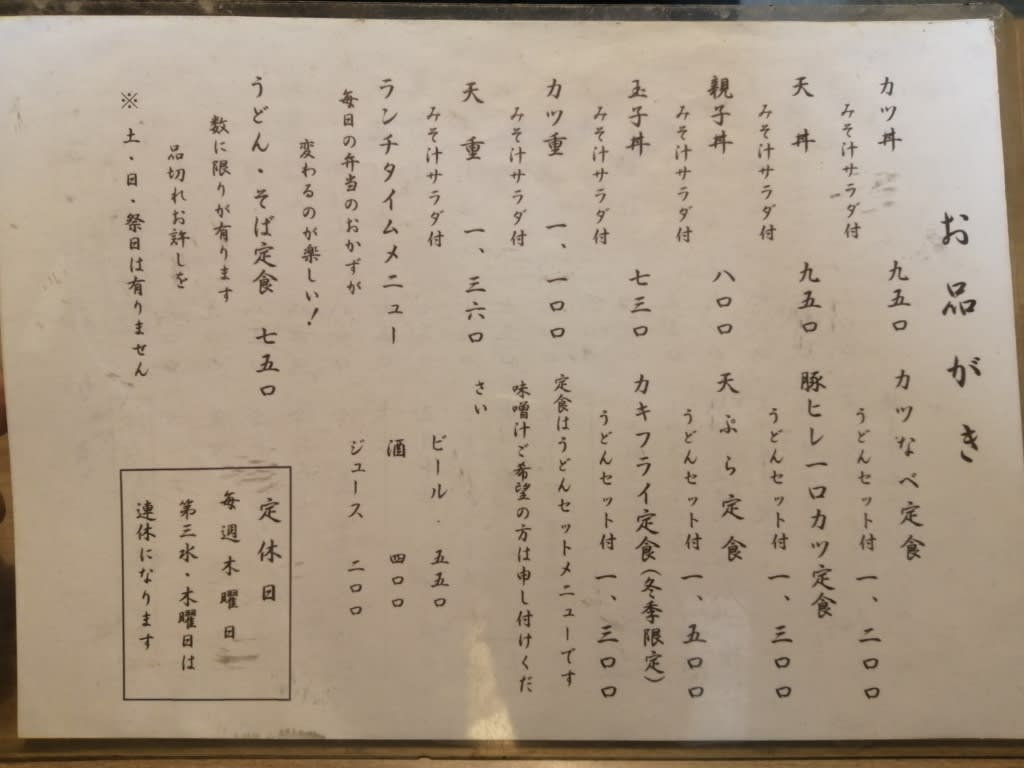 お品がき
カツ丼 九五〇
みそ汁サラダ付
天丼 九五〇
みそ汁サラダ付
親子丼 八〇〇
みそ汁サラダ付
玉子丼 七三〇
みそ汁サラダ付
カツ重 一、一〇〇
みそ汁サラダ付
天重 一、三六〇
みそ汁サラダ付
カツなべ定食
うどんセット付 一、二〇〇
豚ヒレ一口カツ定食
うどんセット付 一、三〇〇
天ぷら定食
うどんセット付 一、五〇〇
カキフライ定食(冬季限定)
うどんセット付 一、三〇〇
定食はうどんセットメニューです
味噌汁ご希望の方は申し付けくだ
さい
ランチタイムメニュー
毎日の弁当のおかずが
変わるのが楽しい!
うどん・そば定食 七五〇
数に限りが有ります
品切れお許しを
※土・日・祭日は有りません
ビール 五五〇
酒 四〇〇
ジュース 二〇〇
定休日
毎週木曜日
第三水・木曜日は
連休になります